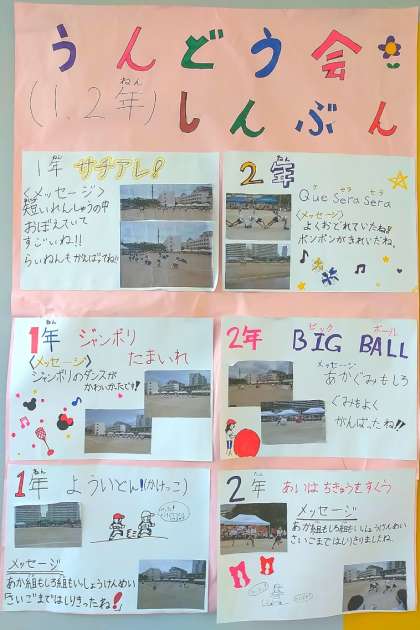 うんどう会
(1.2年)
ねん
しんぶん
1年 サチアレ!
ねん
<メッセージ>
短いれんしゅうの中
おぼえていて
すごいね!!
らいねんもがんばってね!!
2年
ねん
Que Sera Sera
ケ セラ セラ
<メッセージ>
よくおどれていたね!!
ポンポンがきれいだね。
1年 ジャンボリ
ねん
たまいれ
<メッセージ>
ジャンボリのダンスが
かわいかったです!!
2年 BIG BALL
ビック ボール
メッセージ
あかぐみもしろ
ぐみもよく
がんばったね!!
1年 よういとん!!(かけっこ)
ねん
メッセージ
あか組もしろ組もいっしょうけんめい
さいごまではしりきったね!
2年 あいは ちきゅうをすくう
ねん
メッセージ
あか組もしろ組もいっしょうけんめい
さいごまではしりきりましたね。